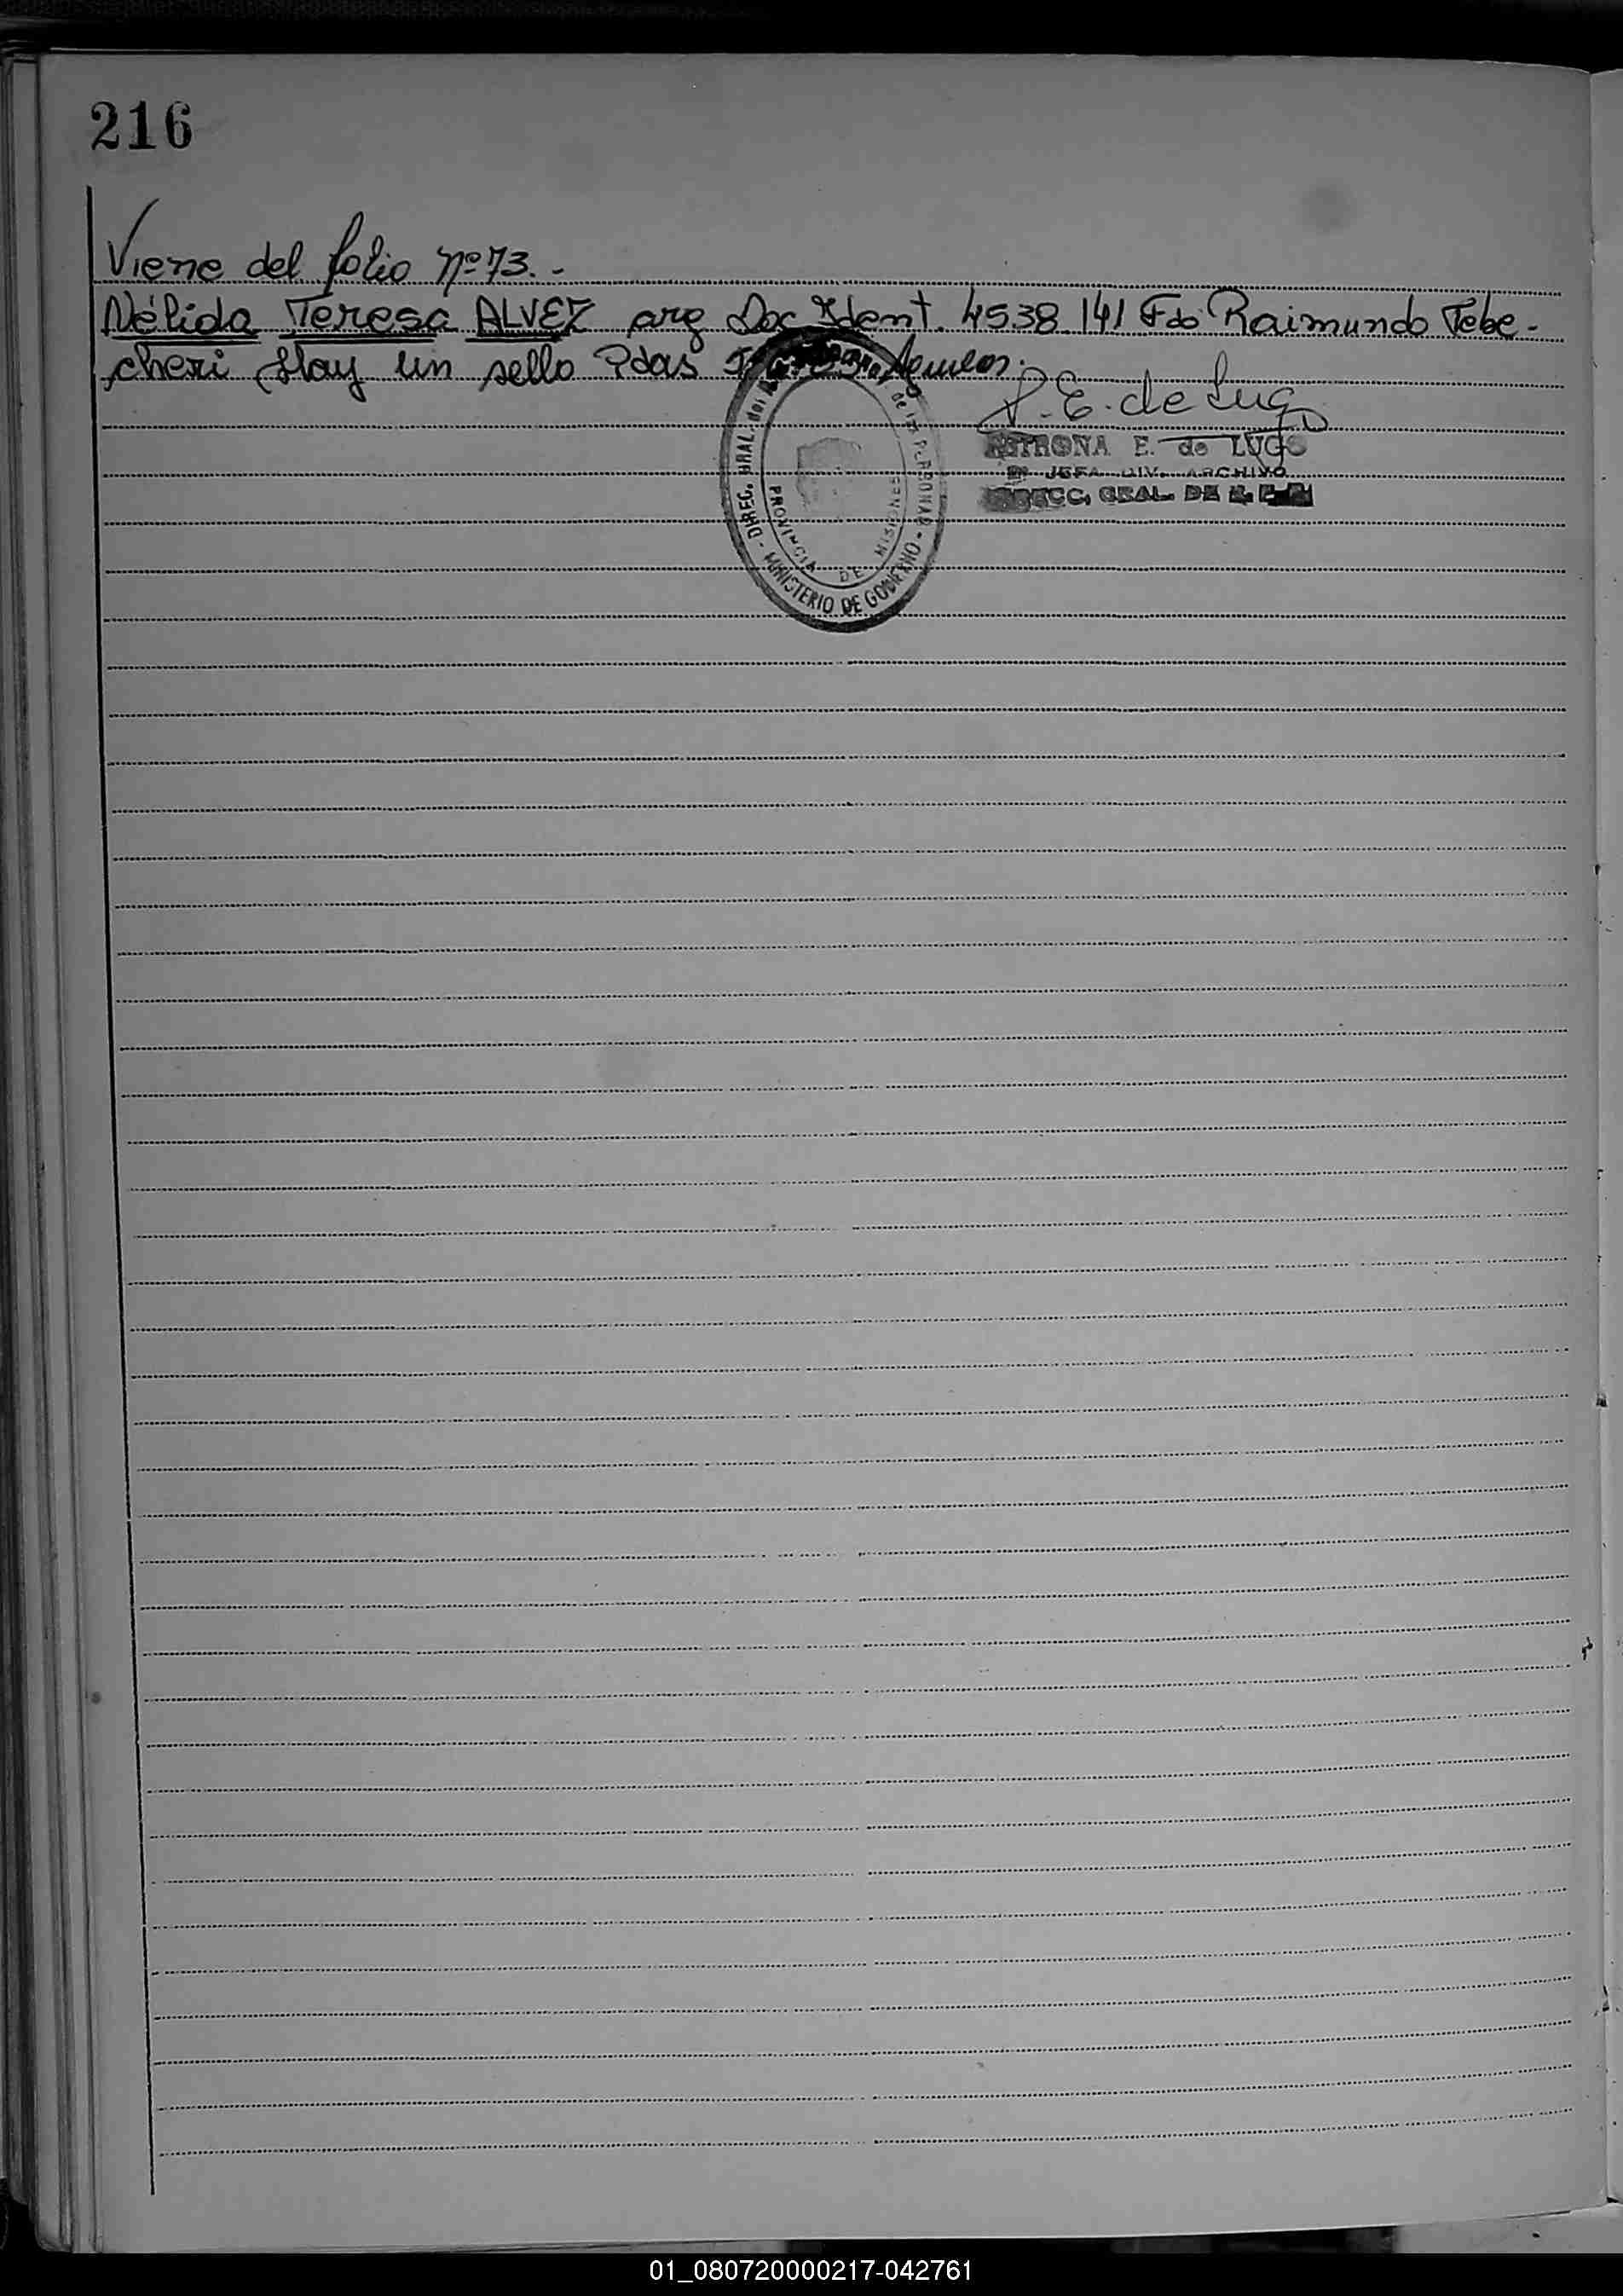 216
Viene del folio nº 73. -
Nélida Teresa ALVEZ arg Doc Ident. 4538 141 Fdo Raimundo Tebe-
cheri Hay un sello Pdas
P. E. de Lugo
PETRONA E. de LUGO
JEFA DIV. ARCHIVO
DIRECC. GRAL. DE
DIREC. GRAL. del de las PERSONAS - MINISTERIO DE GOBIERNO -
PROVINCIA DE MISIONES
01_080720000217-042761